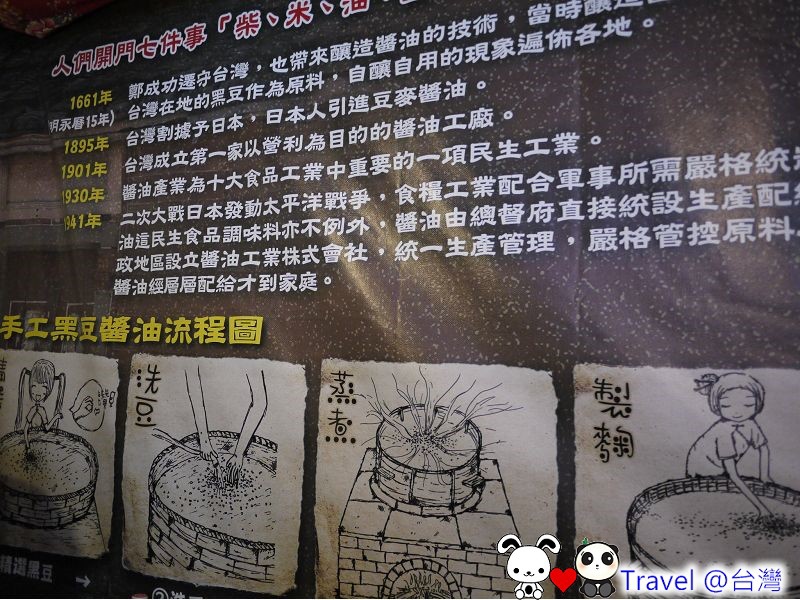 人們開門七件事「柴、米、油、
1661年 鄭成功遷守台灣，也帶來釀造醬油的技術，當時釀造
(明永曆15年) 台灣在地的黑豆作為原料，自釀自用的現象遍佈各地。
1895年 台灣割據予日本，日本人引進豆麥醬油。
1901年 台灣成立第一家以營利為目的的醬油工廠。
1930年 醬油產業為十大食品工業中重要的一項民生工業。
1941年 二次大戰日本發動太平洋戰爭，食糧工業配合軍事所需嚴格統
油這民生食品調味料亦不例外，醬油由總督府直接統設生產配
政地區設立醬油工業株式會社，統一生產管理，嚴格管控原料
醬油經層層配給才到家庭。
手工黑豆醬油流程圖
洗豆
蒸煮
製麴
精選黑豆 →
②洗
Travel @台灣